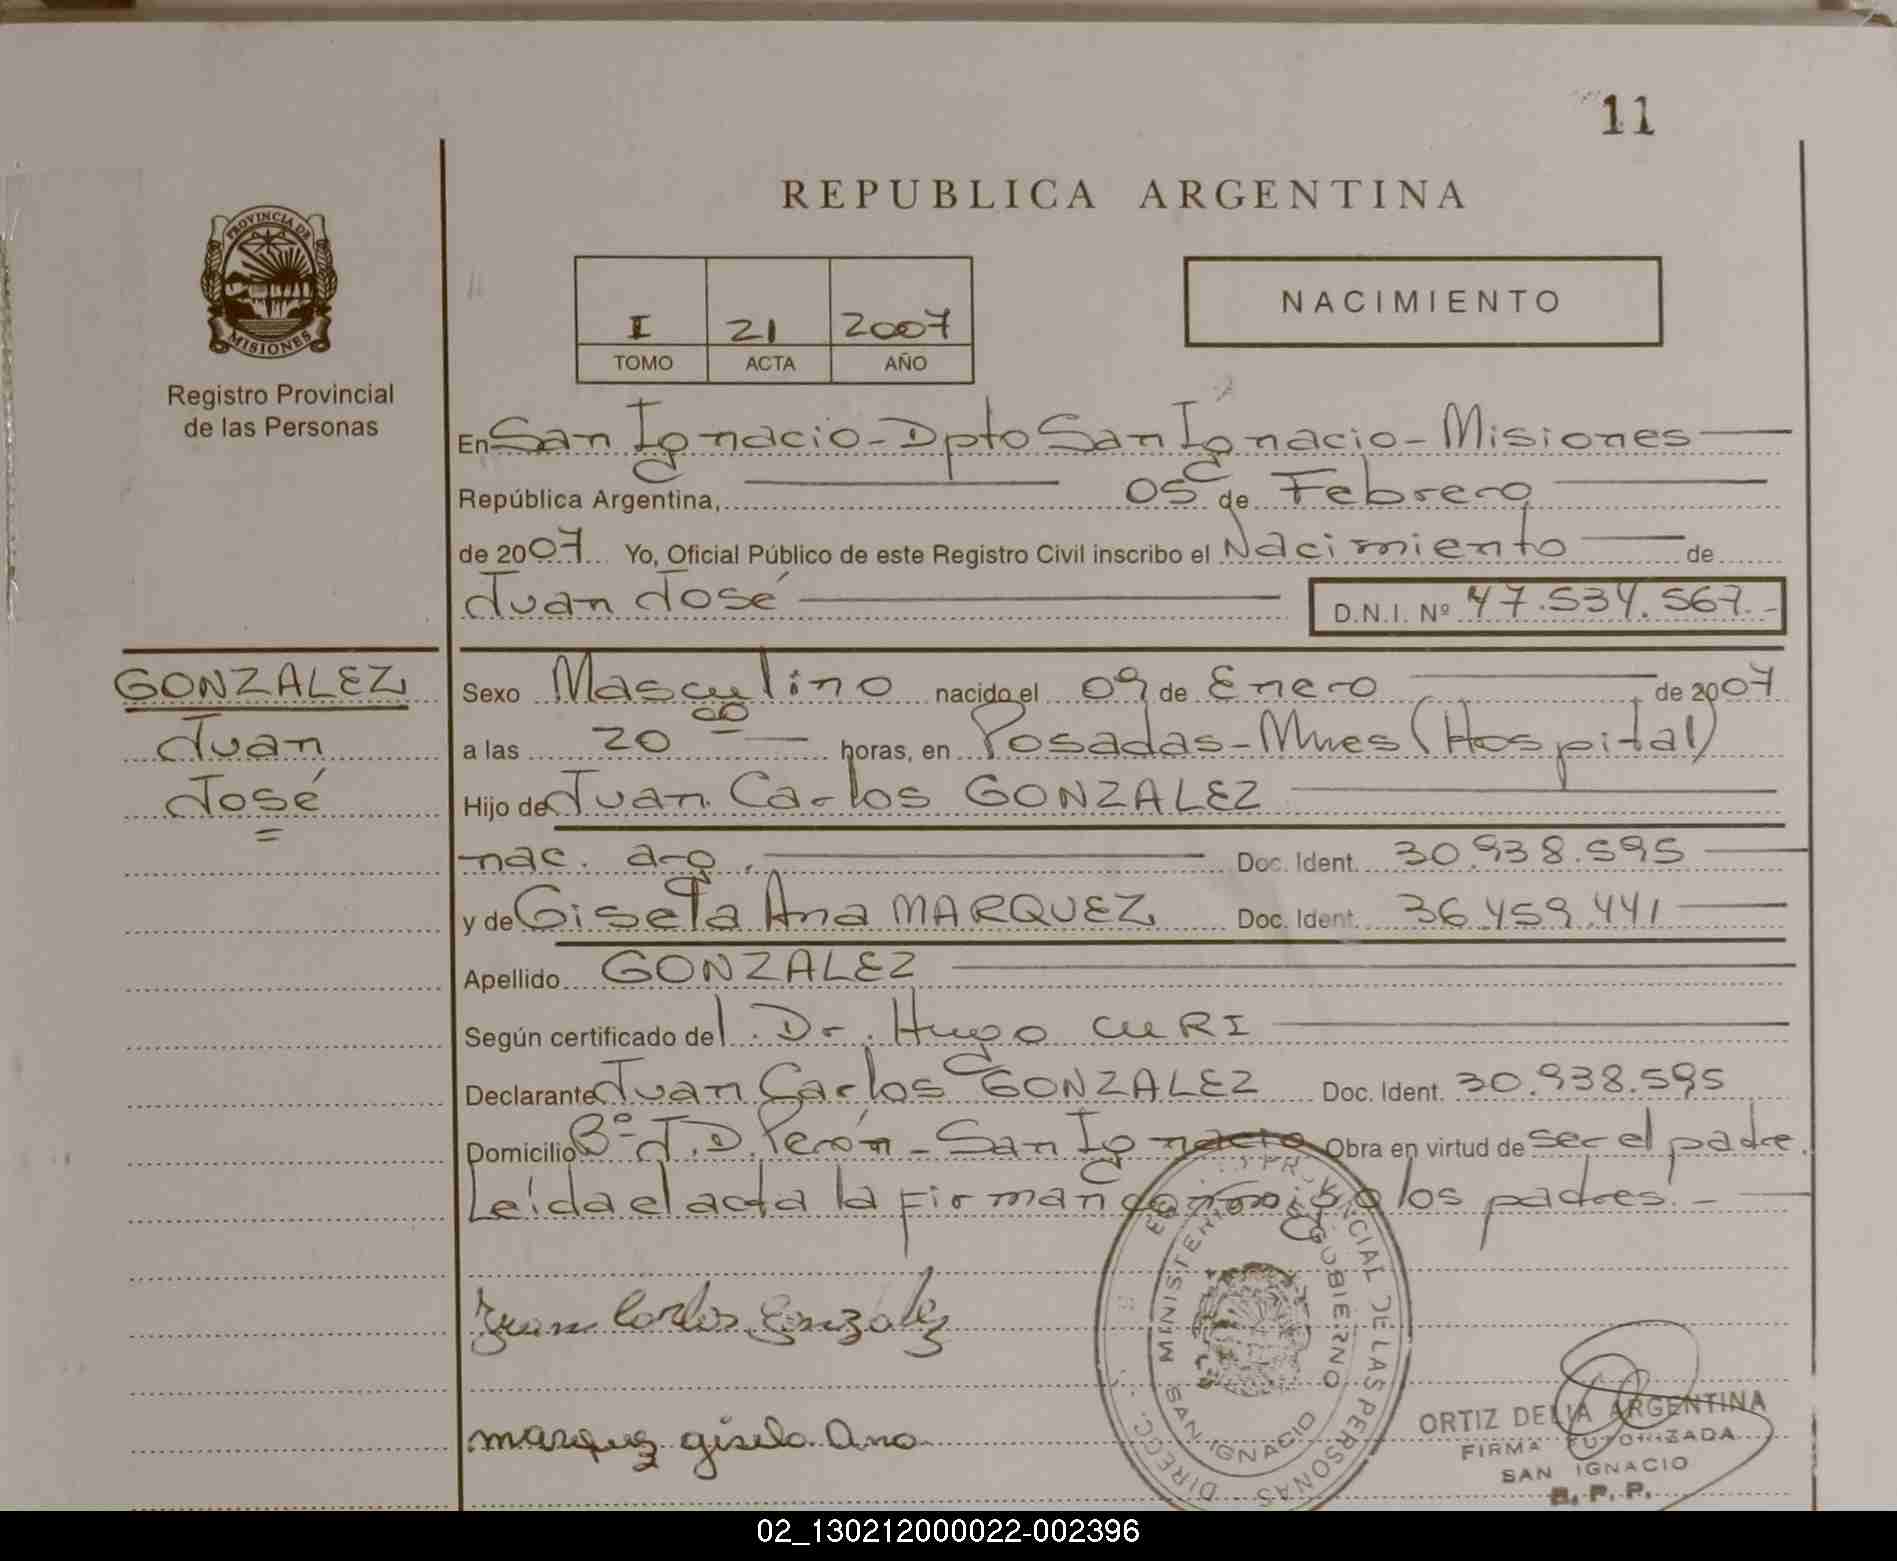 11
REPUBLICA ARGENTINA
PROVINCIA DE MISIONES
Registro Provincial
de las Personas
I 21 2007
TOMO ACTA AÑO
NACIMIENTO
En San Ignacio - Dpto San Ignacio - Misiones
República Argentina, 05 de Febrero
de 2007 Yo, Oficial Público de este Registro Civil inscribo el Nacimiento de
Juan José D.N.I. Nº 47.534.567.-
GONZALEZ
Juan
José
Sexo Masculino nacido el 09 de Enero de 2007
a las 20 00 horas, en Posadas - Mnes (Hospital)
Hijo de Juan Carlos GONZALEZ
nac. arg. Doc. Ident. 30.938.595
y de Gisela Ana MARQUEZ Doc. Ident. 36.459.441
Apellido GONZALEZ
Según certificado del Dr. Hugo CURI
Declarante Juan Carlos GONZALEZ Doc. Ident. 30.938.595
Domicilio Bº J.D. Perón - San Ignacio Obra en virtud de ser el padre.
Leída el acta la firman conmigo los padres.-
Juan Carlos Gonzalez
marquez gisela Ana
PROVINCIAL DE LAS PERSONAS
MINISTERIO GOBIERNO
SAN IGNACIO
ORTIZ DELIA ARGENTINA
FIRMA AUTORIZADA
SAN IGNACIO
R. P. P.
02_130212000022-002396